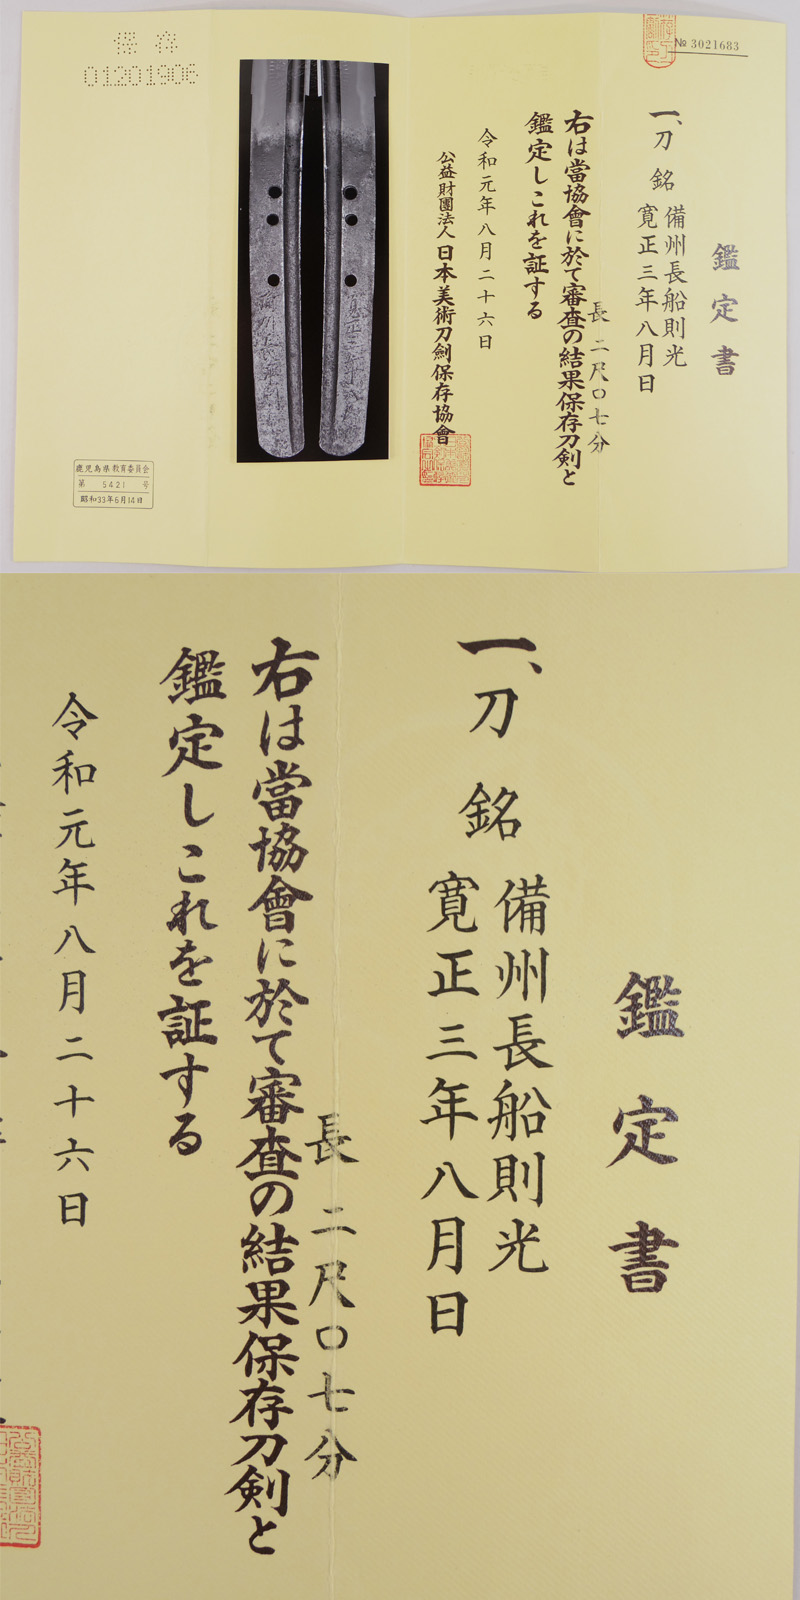 保存
01201906
№ 3021683
鑑定書
一、刀 銘 備州長船則光
寛正三年八月日
長 二尺〇七分
右は當協會に於て審査の結果保存刀剣と
鑑定しこれを証する
令和元年八月二十六日
公益財團法人日本美術刀劍保存協會
鹿児島県教育委員会
第 5421 号
昭和33年6月14日
鑑定書
一、刀 銘 備州長船則光
寛正三年八月日
長 二尺〇七分
右は當協會に於て審査の結果保存刀剣と
鑑定しこれを証する
令和元年八月二十六日